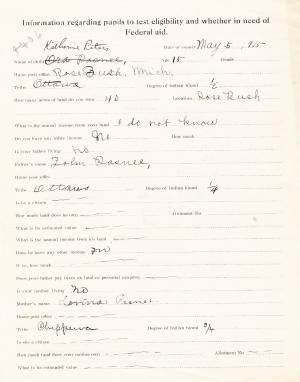 Information regarding pupils to test eligibility and whether in need of
Federal aid.
Katherine Peters
Date of report May 5, 1915
Name of child Age 15 Grade
Home post office Rose Bush, Mich,
Tribe Ottawa Degree of Indian blood 1/2
How many acres of land do you own 40 Location Rose Bush
What is the annual income from your land I do not know
Do you have any other income No How much
Is your father living No
Father's name John
Home post office
Tribe Ottawa Degree of Indian blood
Is he a citizen
How much land does he own Allotment No.
What is its estimated value
What is the annual income from his land
Does he have any other income no
If so, how much
Does your father pay taxes on land or personal property
Is your mother living No
Mother's name
Home post office
Tribe Chippewa Degree of Indian blood 3/4
Is she a citizen
How much land does your mother own Allotment No
What is its estimated value